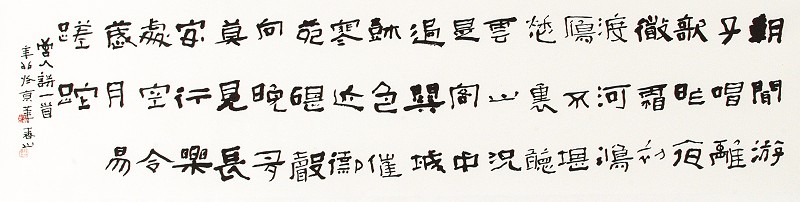 朝聞游
子唱離
歌昨夜
微霜初
渡河鴻
鴈不堪
愁裏聽
雲山況
是客中
過關城
色催
寒近御
苑砧聲
向晚多
莫見長
安行樂
處空令
歲月易
蹉跎
唐人詩一首
年於京華